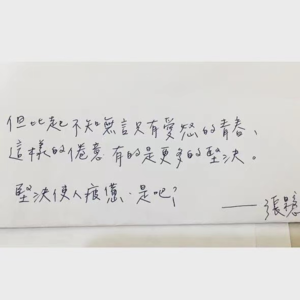 但比起不知無言只有愛怒的青春、
這樣的倦意 有的是更多的堅決。
堅決使人疲憊,是吧?
——張懸